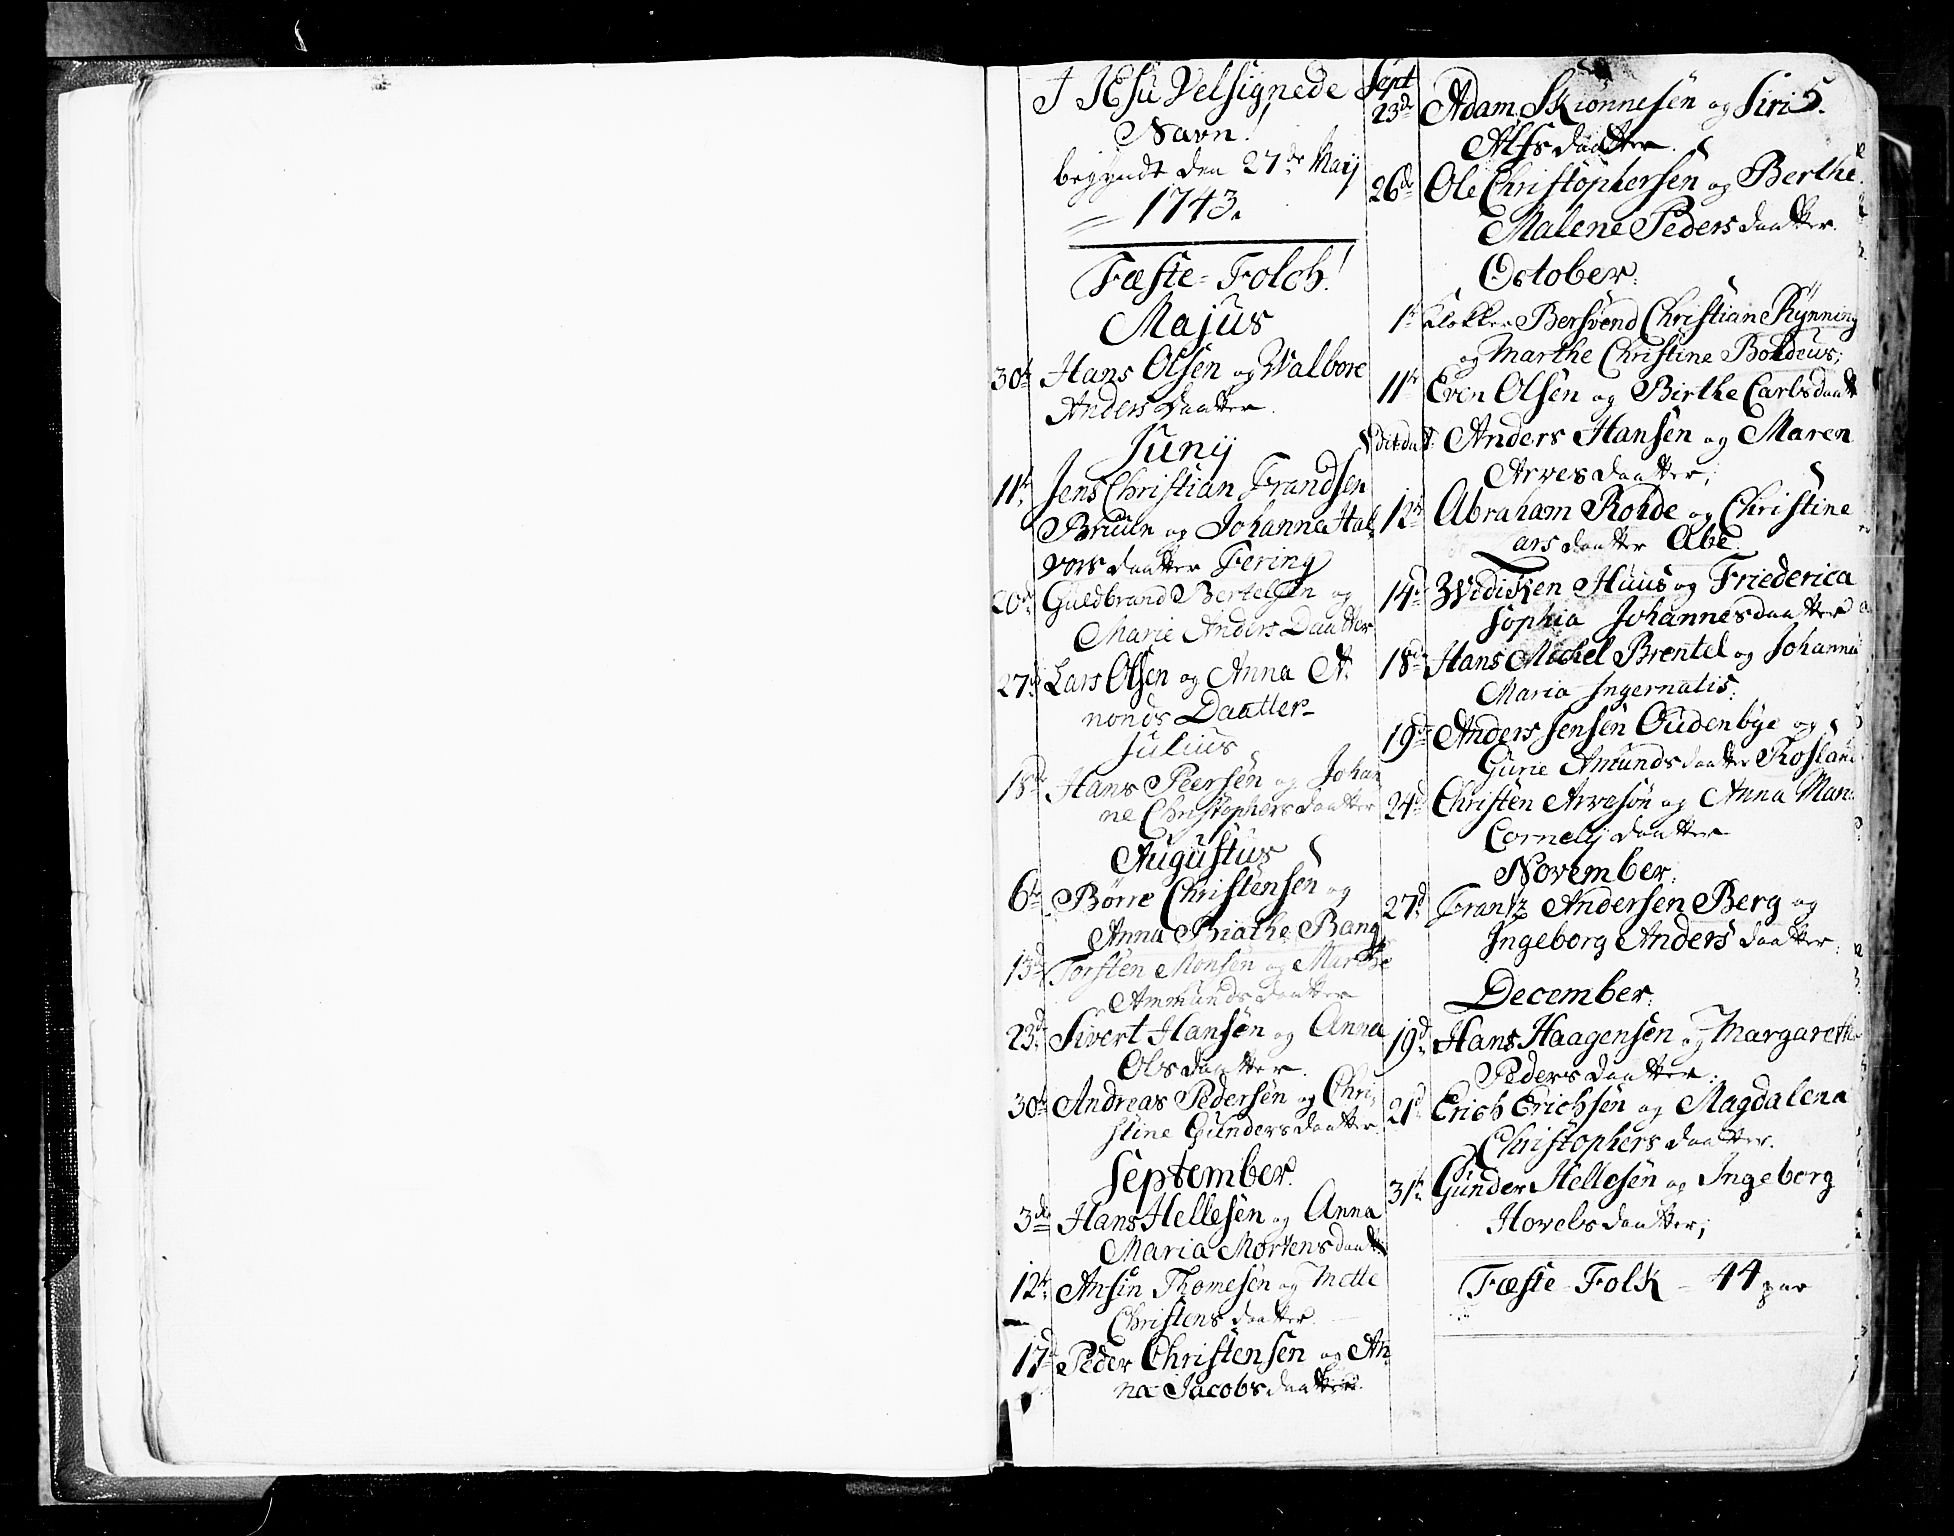 I JEsu Velsignede
Navn!
begyndt den 27de Maij
1743.
Fæste-Folch!
Majus
30t Hans Olsen og Walbore
Anders Daatter.
Junij
11te Jens Christian Frandsen
Bruun og Johanne Hal-
vors daatter Fering
20de Guldbrand Bertelsen og
Marie Anders Daatter
27de Lars Olsen og Anna A-
nonds Daatter
Julius
18de Hans Peersen og Johan
ne Christophers daatter
Augustus
6te Börre Christensen og
Anna Biathe Bang
13de Torsten Monsen og Marthe
Ammunds daatter
23d Sivert Hansen og Anna
Ols daatter.
30te Andreas Pedersen og Chri-
stine Gunders daatter.
September.
3de Hans Hellesen og Anna
Maria Mortens daatt
12te Ansin Thomesen og Mette
Christens daatter.
17de Peder Christensen og An-
na Jacobs daatter.
Sept
23de Adam Skionnesen og Siri 5.
Alfs daatter.
26de Ole Christophersen og Berthe
Malene Peders daatter.
October.
1te Klokker Bersvend Christian Rÿnning
og Marthe Christine Boldeus;
11te Even Olsen og Birthe Carls daatt
dito dat. Anders Hansen og Maren
Arves daatter;
12te Abraham Rohde og Christine
Lars daatter Abe.
14d Wedicken Huus og Friederica
Sophia Johannes daatter
18de Hans Michel Brentel og Johanna
Maria Ingernatis.
19de Anders Jensen Oudenbye og
Gurie Amunds daatter Rosland
24d Christen Arvesøn og Anna Mar.
Cornelij daatter
November.
27d Frantz Andersen Berg og
Ingeborg Anders daatter.
December.
19d Hans Haagensen og Margarethe
Peders daatter.
21d Erich Erichsen og Magdalena
Christophers daatter.
31te Gunder Hellesen og Ingeborg
Hovels daatter;
Fæste-Folk - 44 par